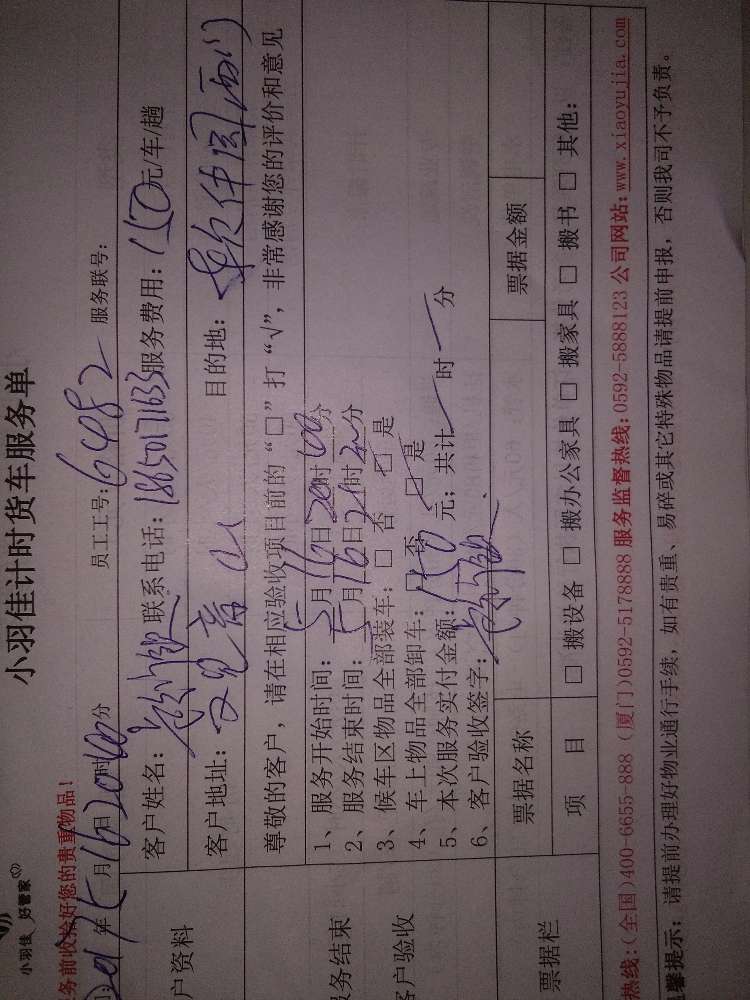 小羽佳 好管家
小羽佳计时货车服务单
务前收拾好您的贵重物品!
年5月16日20时00分 员工工号:6482 服务联号:
户资料
客户姓名: 联系电话:18650171633 服务费用:150元/车/趟
客户地址: 目的地:软件园
尊敬的客户,请在相应验收项目前的“□”打“√”,非常感谢您的评价和意见
服务结束
客户验收
1、服务开始时间:5月16日20时00分
2、服务结束时间:5月16日21时20分
3、候车区物品全部装车:□ 否 □ 是
4、车上物品全部卸车:□ 否 □ 是
5、本次服务实付金额:150元;共计 时 分
6、客户验收签字:
票据栏
票据名称 票据金额
项 目 □ 搬设备 □ 搬办公家具 □ 搬家具 □ 搬书 □ 其他:
热线:(全国)400-6655-888 (厦门)0592-5178888 服务监督热线:0592-5888123 公司网站:www.xiaoyujia.com
馨提示:请提前办理好物业通行手续,如有贵重、易碎或其它特殊物品请提前申报,否则我司不予负责。